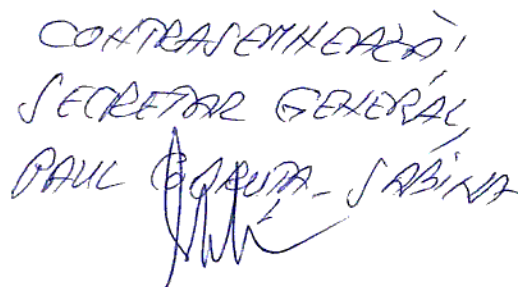 CONTRASEMNEAZĂ,
SECRETAR GENERAL,
PAUL - SABINA